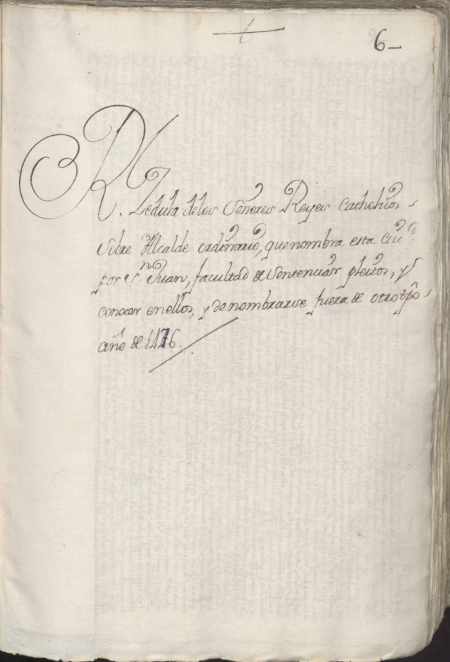 6
R. Zedula delos Señores Reyes Catholicos
sobre Alcalde cadañero, que nombra esta Ciud
por Sn Juan, facultad de sentenciar pleitos, y
conocer en ellos, y de nombrarse fuera de otro tpo
año de 1476.